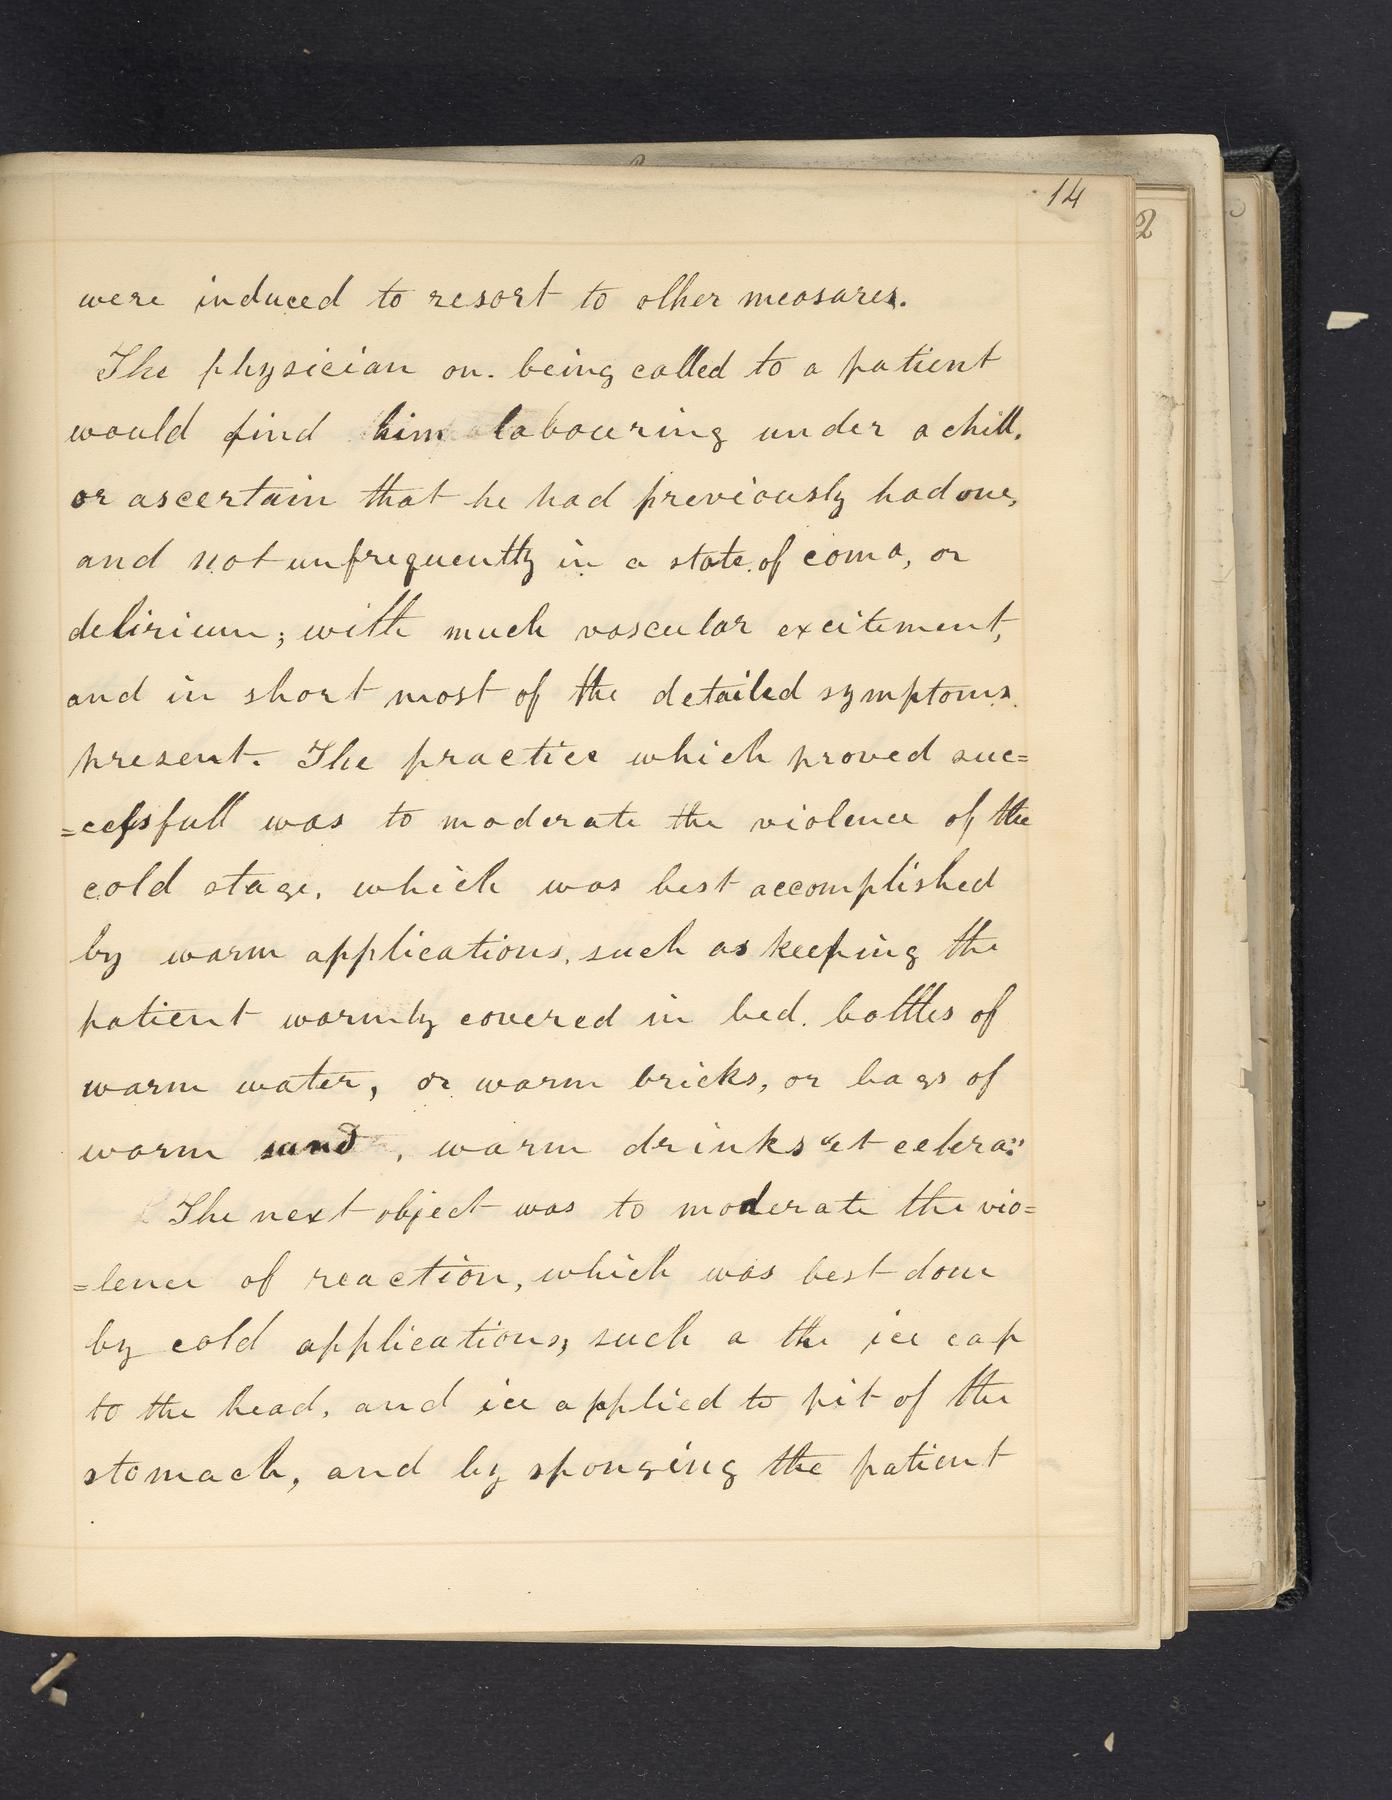 14
2
were induced to resort to other measures.
The physician on. being called to a patient
would find him labouring under a chill.
or ascertain that he had previously had one,
and not unfrequently in a state of coma, or
delirium; with much vascular excitement,
and in short most of the detailed symptoms.
present. The practice which proved suc=
=cessfull was to moderate the violence of the
cold stage, which was best accomplished
by warm applications, such as keeping the
patient warmly covered in bed. bottles of
warm water, or warm bricks, or bags of
warm sand, warm drinks "et cetera."
The next object was to moderate the vio=
=lence of reaction, which was best done
by cold applications, such a the ice cap
to the head, and ice applied to pit of the
stomach, and by sponging the patient